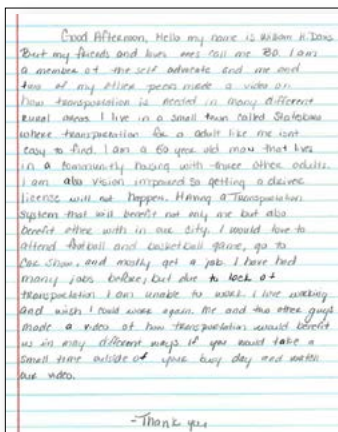 Good Afternoon, Hello my name is William H. Davis
But my friends and loves ones call me Bo. I am
a member of the self advocate and me and
two of my other peers made a video on
how transportation is needed in many different
rural areas I live in a small town called Statesboro
where transportation for a adult like me isnt
easy to find. I am a 60 year old man that lives
in a community housing with three other adults.
I am also vision impaired so getting a
license will not happen. Having a Transportation
system that will benefit not only me but also
benefit other with in our city. I would love to
attend football and basketball game, go to
Car show, and mostly get a job. I have had
many jobs before, but due to lack of
transportation I am unable to work. I love working
and wish I could work again. Me and two other guys
made a video of how transportation would benefit
us in may different ways if you would take a
small time outside of your busy day and watch
our video.
-Thank you